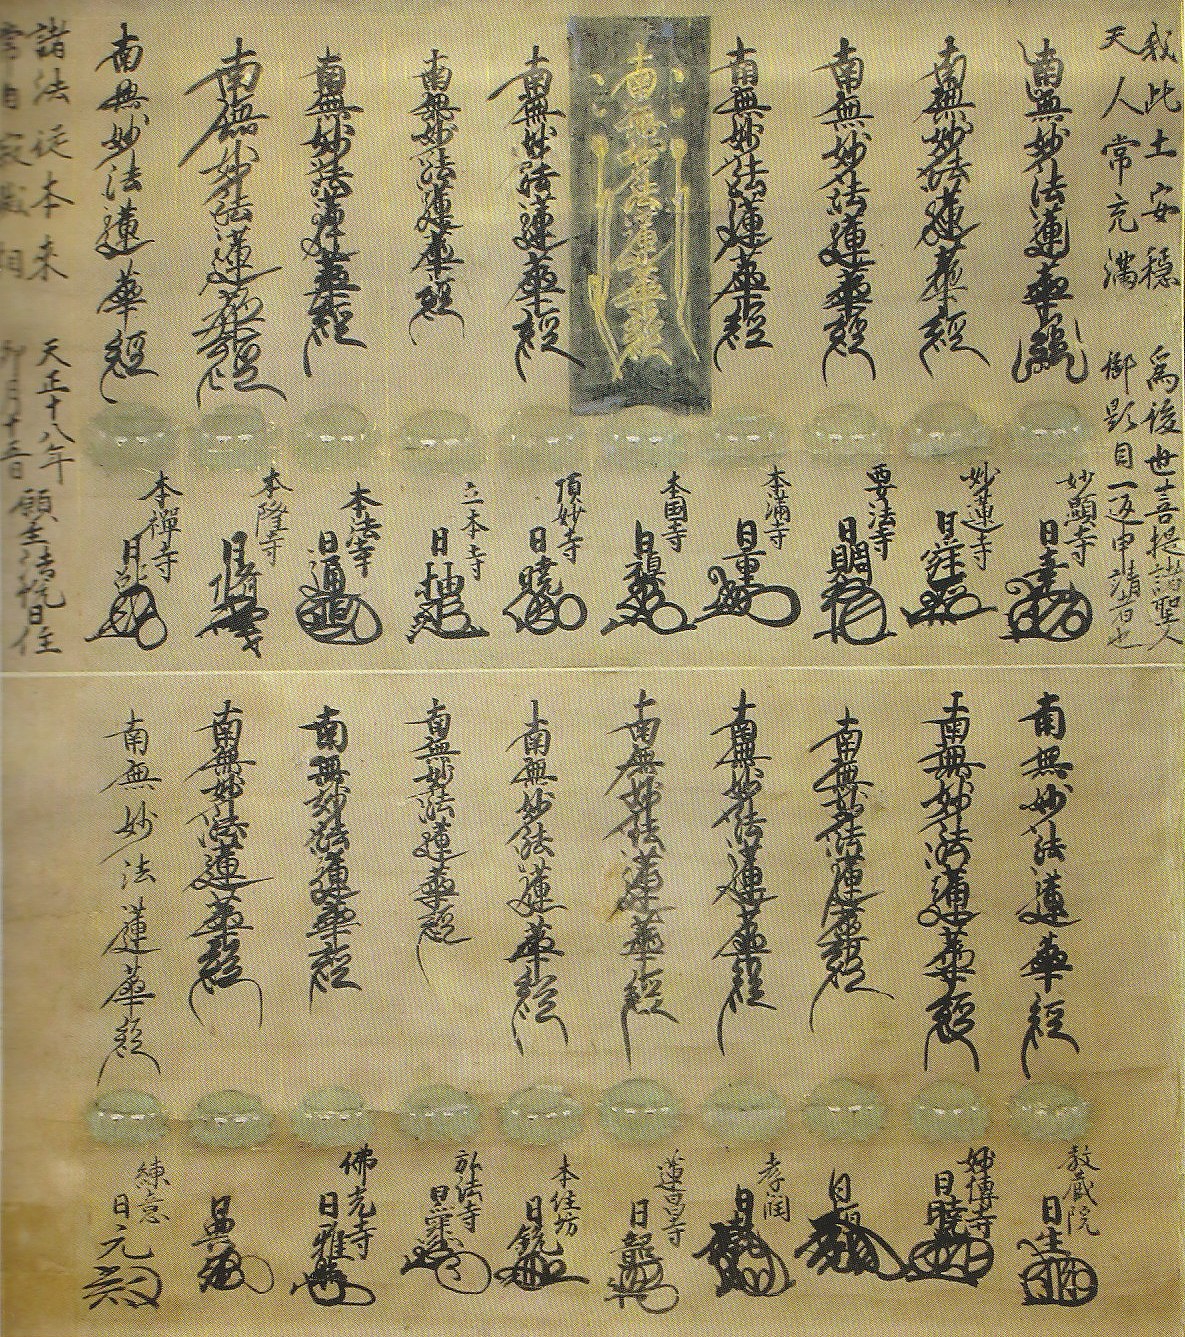 我此土安穏
天人常充満
為後世菩提諸聖人
御影目一返申請者也
南無妙法蓮華経
南無妙法蓮華経
南無妙法蓮華経
南無妙法蓮華経
南無妙法蓮華経
南無妙法蓮華経
南無妙法蓮華経
南無妙法蓮華経
南無妙法蓮華経
南無妙法蓮華經
妙顯寺
日
妙蓮寺
日
要法寺
日
本満寺
日重
本国寺
日禛
頂妙寺
日暁
立本寺
日抽
本法寺
日通
本隆寺
日
本禪寺
日
諸法従本来
常自寂滅相
天正十八年
卯月十五日
願主法悦日住
南無妙法蓮華經
南無妙法蓮華經
南無妙法蓮華經
南無妙法蓮華經
南無妙法蓮華經
南無妙法蓮華經
南無妙法蓮華經
南無妙法蓮華經
南無妙法蓮華經
南無妙法蓮華經
教蔵院
日生
妙傳寺
日暁
日
日
蓮昌寺
日韶
本住坊
日銃
弘法寺
日
佛光寺
日雅
日典
練意
日元